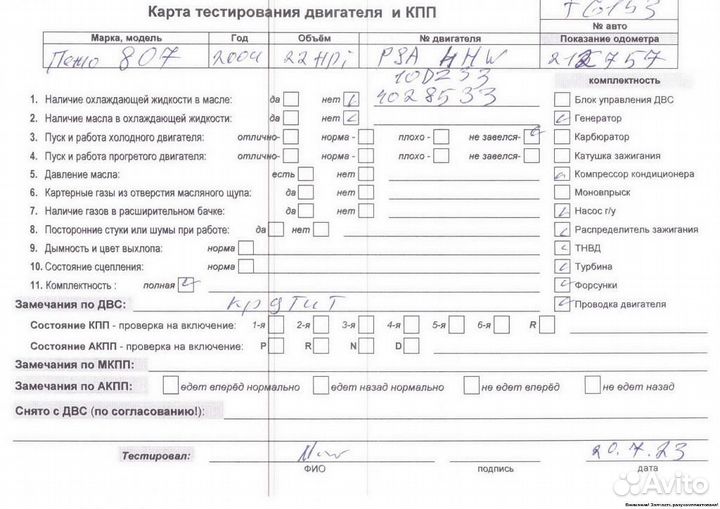 Карта тестирования двигателя и КПП
№ авто
Марка, модель Год Объём № двигателя Показание одометра
Пежо 807 2004 22HDi PSA 4HW 212757
10DZ33
4028533
комплектность
1. Наличие охлаждающей жидкости в масле: да нет
Блок управления ДВС
2. Наличие масла в охлаждающей жидкости: да нет
Генератор
3. Пуск и работа холодного двигателя: отлично- норма - плохо - не завелся-
Карбюратор
4. Пуск и работа прогретого двигателя: отлично- норма - плохо - не завелся-
Катушка зажигания
5. Давление масла: есть нет
Компрессор кондиционера
6. Картерные газы из отверстия масляного щупа: да нет
Моновпрыск
7. Наличие газов в расширительном бачке: да нет
Насос г/у
8. Посторонние стуки или шумы при работе: да нет
Распределитель зажигания
9. Дымность и цвет выхлопа: норма
ТНВД
10. Состояние сцепления: норма
Турбина
11. Комплектность : полная
Форсунки
Замечания по ДВС: крутит
Проводка двигателя
Состояние КПП - проверка на включение: 1-я 2-я 3-я 4-я 5-я 6-я R
Состояние АКПП - проверка на включение: P R N D
Замечания по МКПП:
Замечания по АКПП: едет вперёд нормально едет назад нормально не едет вперёд не едет назад
Снято с ДВС (по согласованию!):
Тестировал: 20.7.23
ФИО подпись дата
Avito